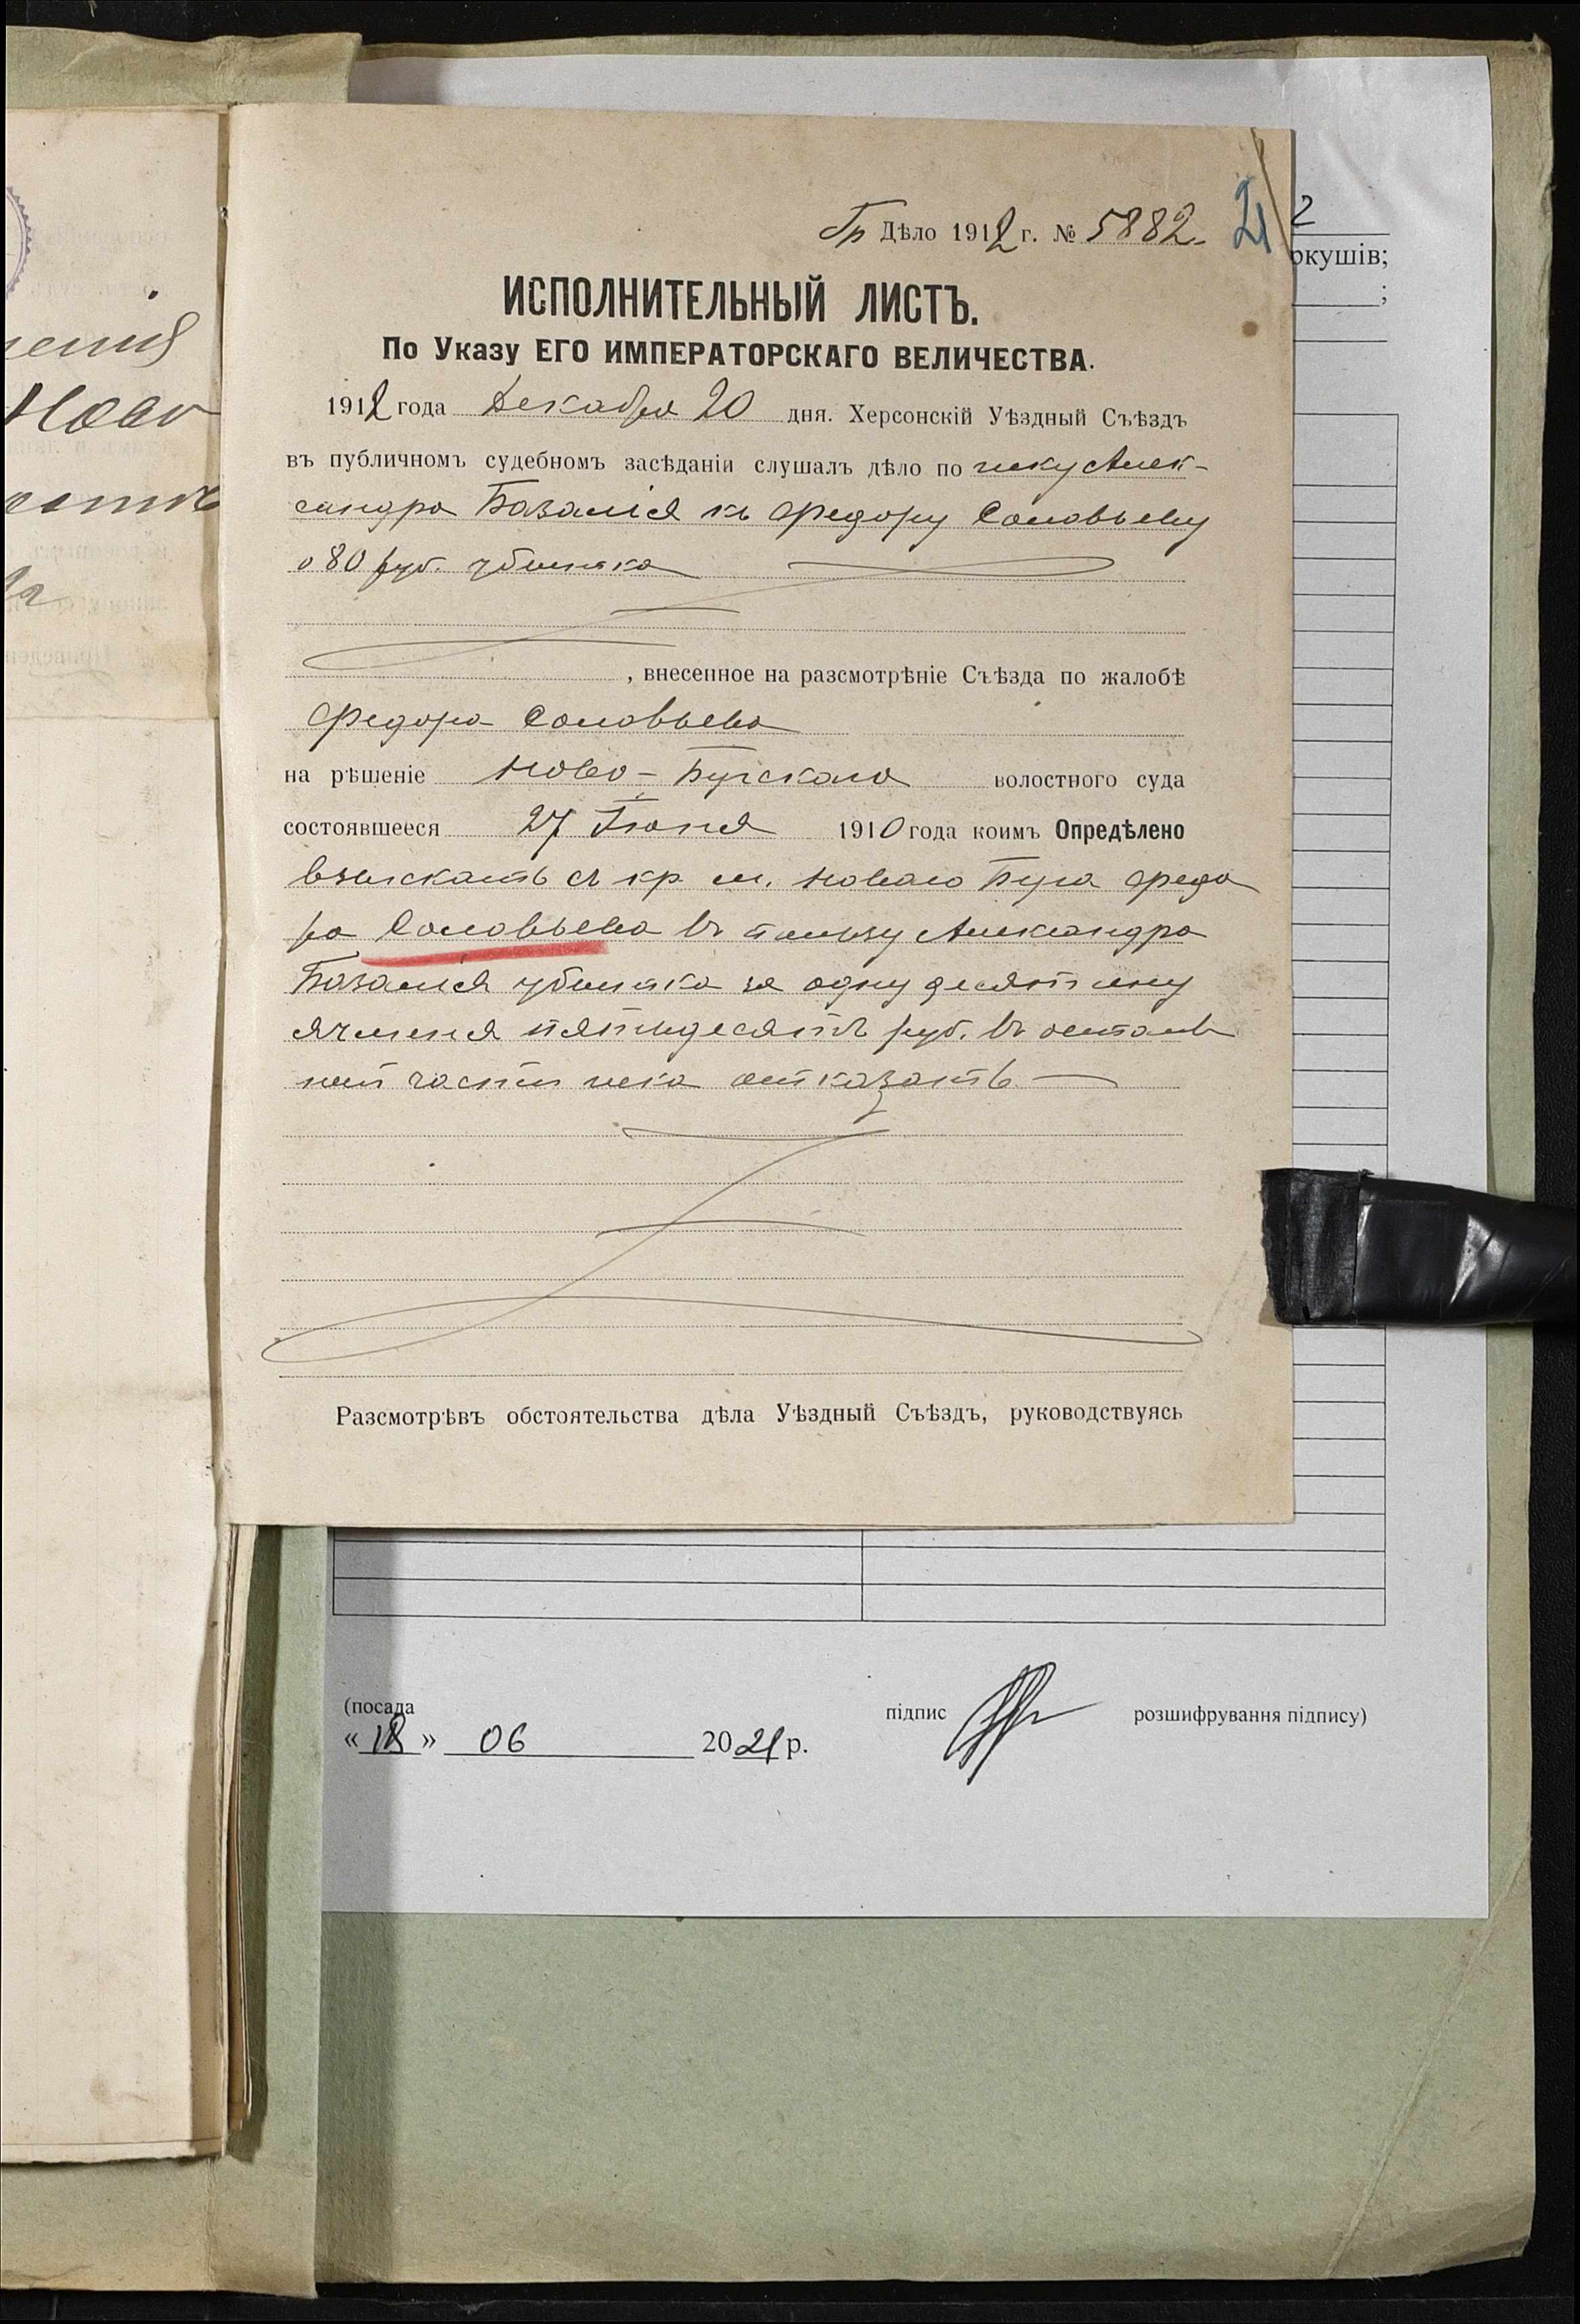 Гр Дѣло 1912 г. № 5882.
21
2
ркушів;
;
ИСПОЛНИТЕЛЬНЫЙ ЛИСТЪ.
По Указу ЕГО ИМПЕРАТОРСКАГО ВЕЛИЧЕСТВА.
1912 года Декабря 20 дня. Херсонскій Уѣздный Съѣздъ
въ публичномъ судебномъ засѣданіи слушалъ дѣло по иску Алек-
сандра Базалія къ Федору Соловьеву
о 80 руб. убытка
, внесенное на разсмотрѣніе Съѣзда по жалобѣ
Федора Соловьева
на рѣшеніе Ново-Бугскаго волостного суда
состоявшееся 27 Іюня 1910 года коимъ Опредѣлено
взыскать съ кр. м. Новаго Буга Федо
ра Соловьева въ пользу Александра
Базалія убытка за одну десятину
ячменя пятьдесятъ руб. въ осталь
ной части иска отказать
Разсмотрѣвъ обстоятельства дѣла Уѣздный Съѣздъ, руководствуясь
Ново
(посада підпис розшифрування підпису)
« 18 » 06 2021 р.